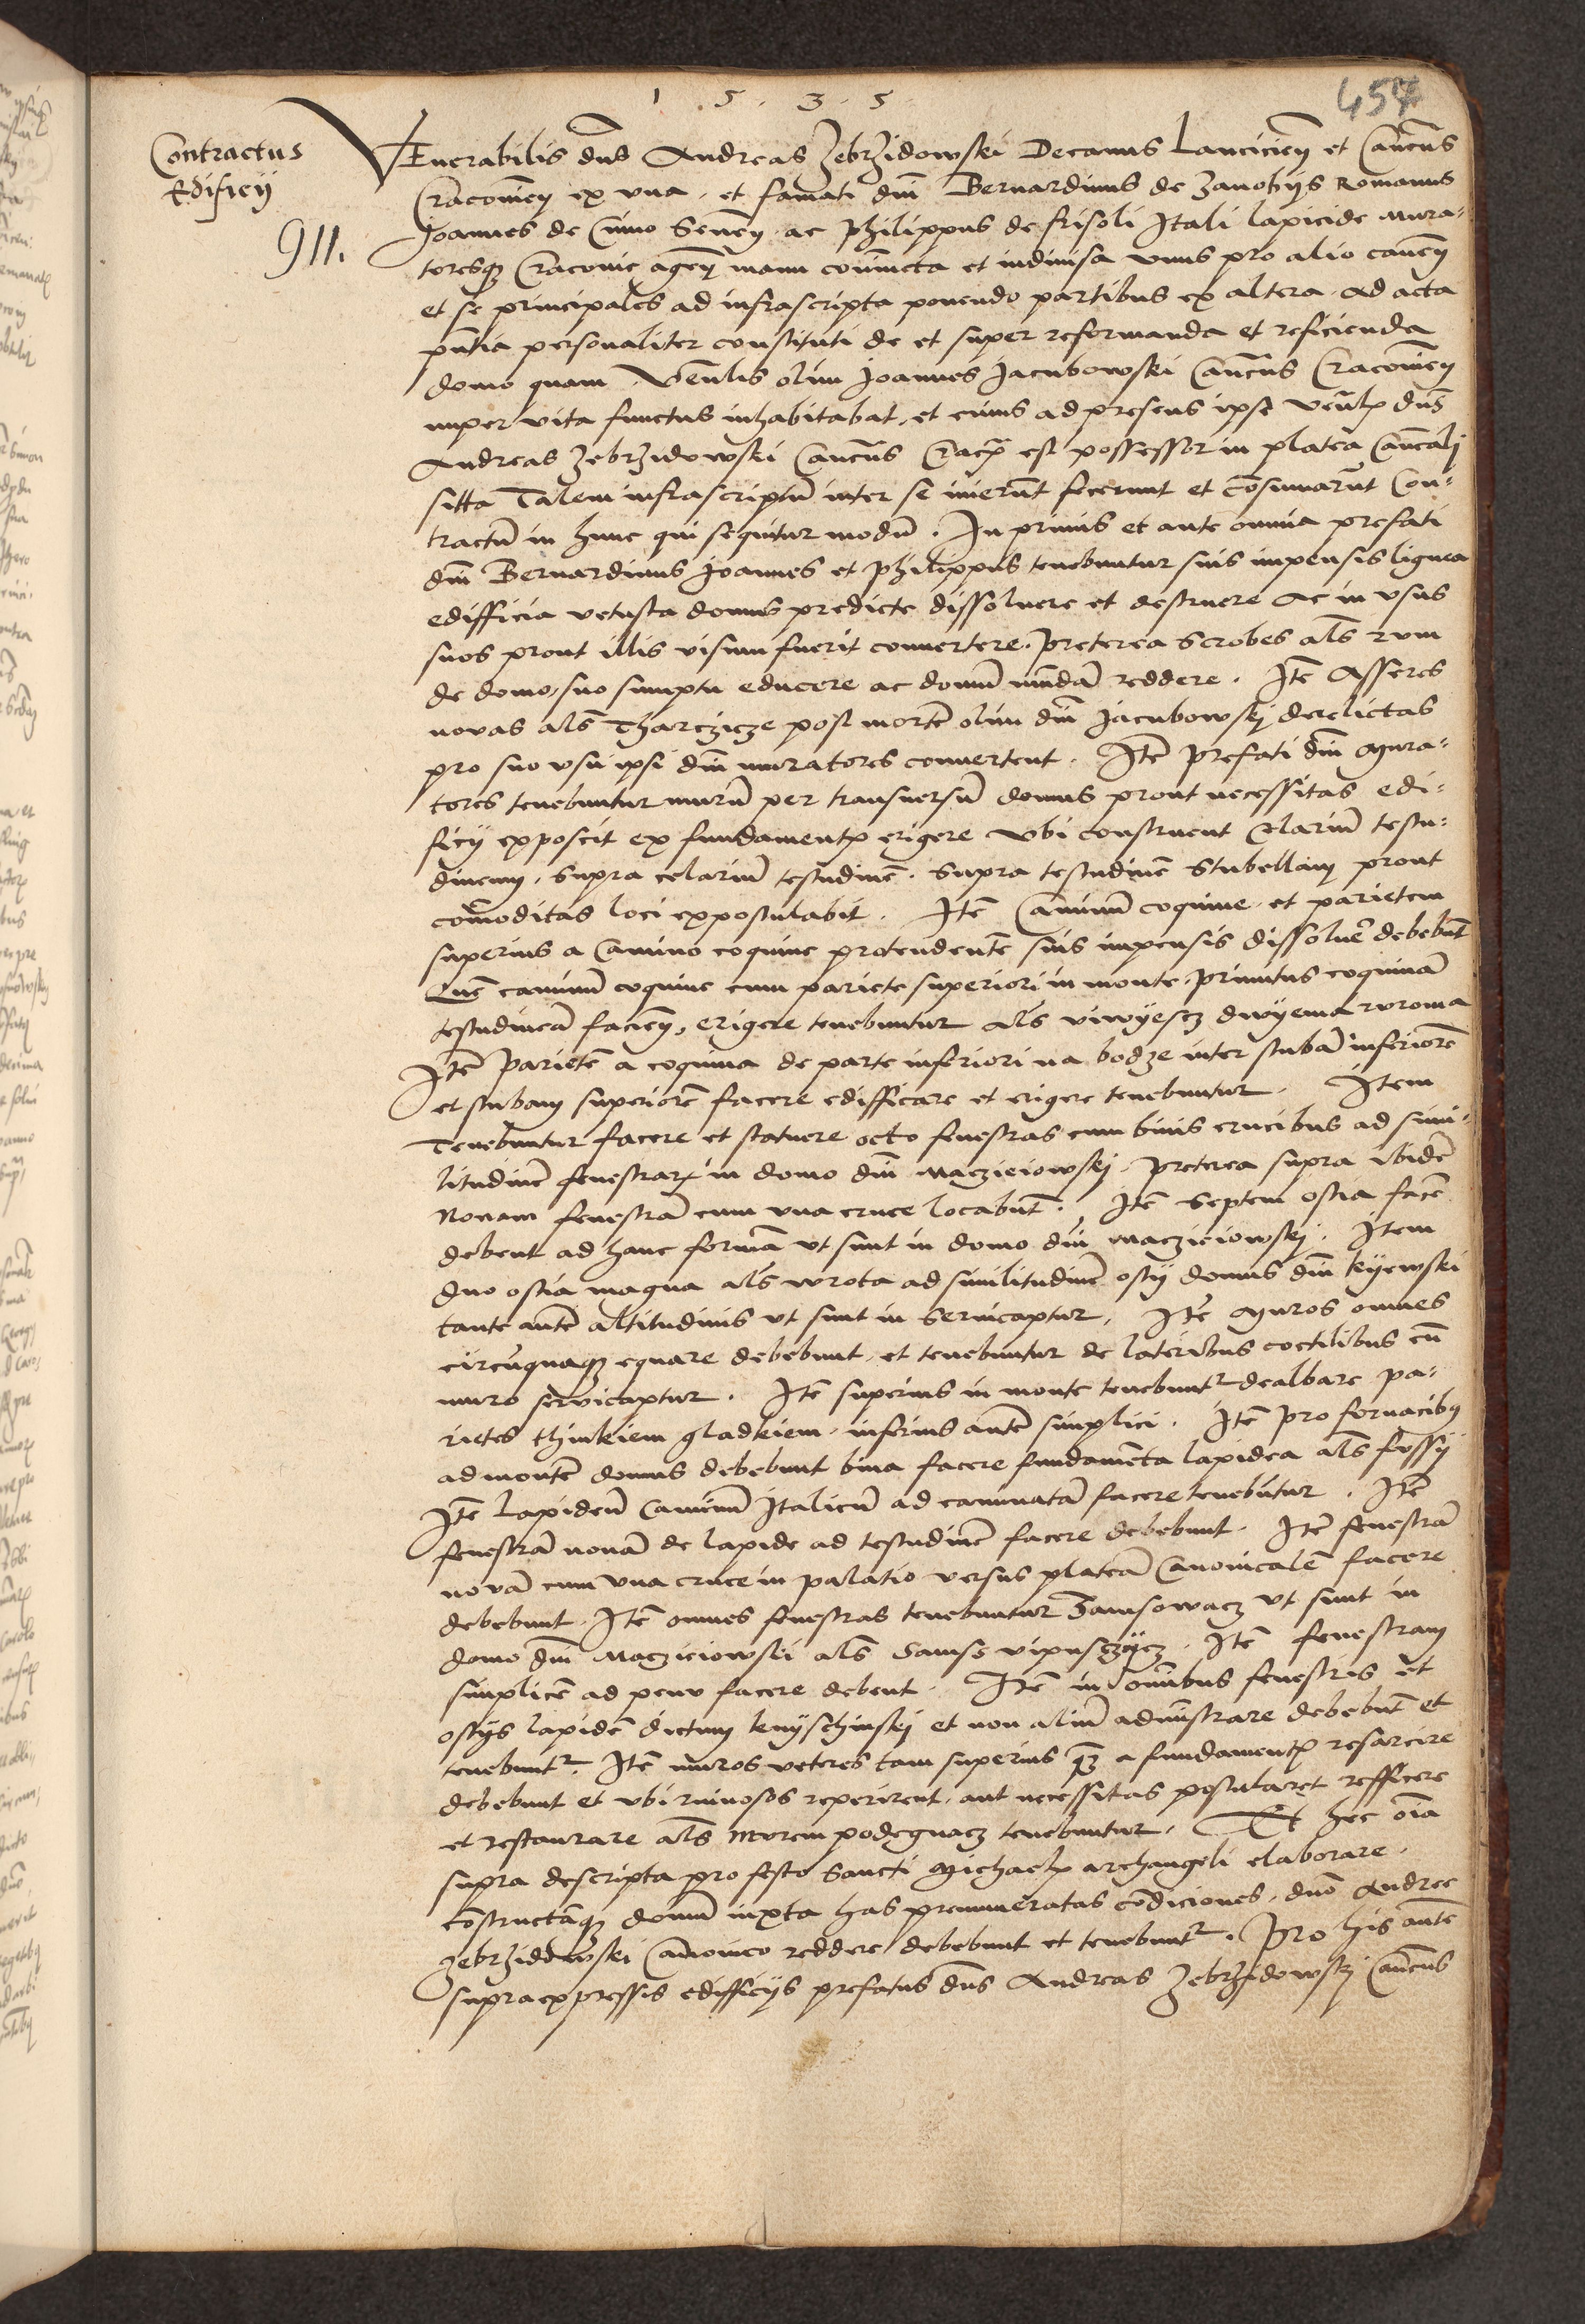 1 5 3 5
457
Contractus
Edificij
911.
VEnerabilis dns Andreas Zebrzidowski Decanus Lancicien et Cancus
Cracovien ex vna, et famati dni Bernardinus de Zanobys Romanus
Joannes de Cino Senen ac Philippus de frisoli Itali lapicide mura-
toresqz Cracovie agen manu coniuncta et indiuisa vnus pro alio caven
et se principales ad infrascripta ponendo partibus ex altera. ad acta
pntia personaliter constituti de et super reformanda et reficienda
domo quam Venlis olim Joannes Jacubowski Cancus Cracovien
nuper vita functus inhabitabat, et cuius ad presens ipse venlis dns
Andreas Zebrzidowski Cancus Crac est possessor in platea Cancali
sitta Talem infrascriptu inter se inierunt fecerunt et consumarunt Con-
tractu in hunc qui sequitur modu. In primis et ante omnia prefati
dni Bernardinus Joannes et Philippus tenebuntur suis impensis lignea
edifficia vetusta domus predicte dissoluere et destruere ac in vsus
suos prout illis visum fuerit conuertere. Preterea Scrobes als rvm
de domo, suo sumptu educere ac domu munda reddere. Ite Asseres
novas als Tharczicze post morte olim dni Jacubowskj derelictas
pro suo vsu ipsi dni muratores convertent. Ite prefati dni Mura-
tores tenebuntur muru per transversu domus prout necessitas edi-
ficij exposcit ex fundamentis erigere vbi construent Celariu testu-
dineum, supra celariu testudine. supra testudine Stubellam prout
comoditas loci expostulabit. Ite Caminu coquine et parietem
superius a Camino coquine protendente suis impensis dissoluere debebunt
Que caminu coquine cum pariete superiori in monte, prinitus coquina
testudinea facien, erigere tenebuntur als viwyescz dwyema rvroma
Ite Pariete a coquina de parte inferiori na bodze inter stuba inferiore
et stubam superiore facere edifficare et erigere tenebuntur. Item
Tenebuntur facere et statuere octo fenestras cum binis crucibus ad simi-
litudine fenestrar in domo dni Macziciowskj. Preterea supra ibide
Nonam fenestra cum vna cruce locabunt. Ite Septem ostia face
debent ad hanc forma vt sunt in domo dni Macziciowskj. Item
duo ostia magna als wrota ad similitudine ostij domus dni kyewski
tante ante altitudinis vt sunt in Servicaptur. Ite Muros omnes
circuquaqz equare debebunt, et tenebuntur de lateribus coctilibus cu
muro servicaptur. Ite superius in monte tenebuntr dealbare pa-
rietes thinkiem gladkiem, inferius ante simplici. Ite pro fornacibus
ad monte domus debebunt bina facere fundamenta lapidea als fvssy
Ite Lapideu Caminu Italicu ad caminata facere tenebuntur. Ite
fenestra nona de lapide ad testudine facere debebunt. Ite fenestra
nova cum vna cruce in palatio versus platea Canonicale facere
debebunt. Ite omnes fenestras tenebuntur Samsowacz vt sunt in
domo dni Macziciowski als Sams vipusczycz. Ite fenestram
simplice ad penu facere debent. Ite in omibus fenestris et
ostijs lapide dictum kuyschinskj et non aliu adminstrare debebunt et
tenebuntr. Ite muros veteres tam superius qz a fundamentis resarcire
debebunt et vbi ruinosos reperirent, aut necessitas postularet refficere
et restaurare als mvrem podegnacz tenebuntur. Et hec oia
supra descripta pro festo Sancti Michaelis archangeli elaborare.
constructaqz domu iuxta has prenumeratas condiciones, dno Andree
Zebrzidowski Canonico reddere debebunt et tenebuntr. Pro his ante
supraexpressis edifficijs prefatus dns Andreas Zebrzidowskj Cancus